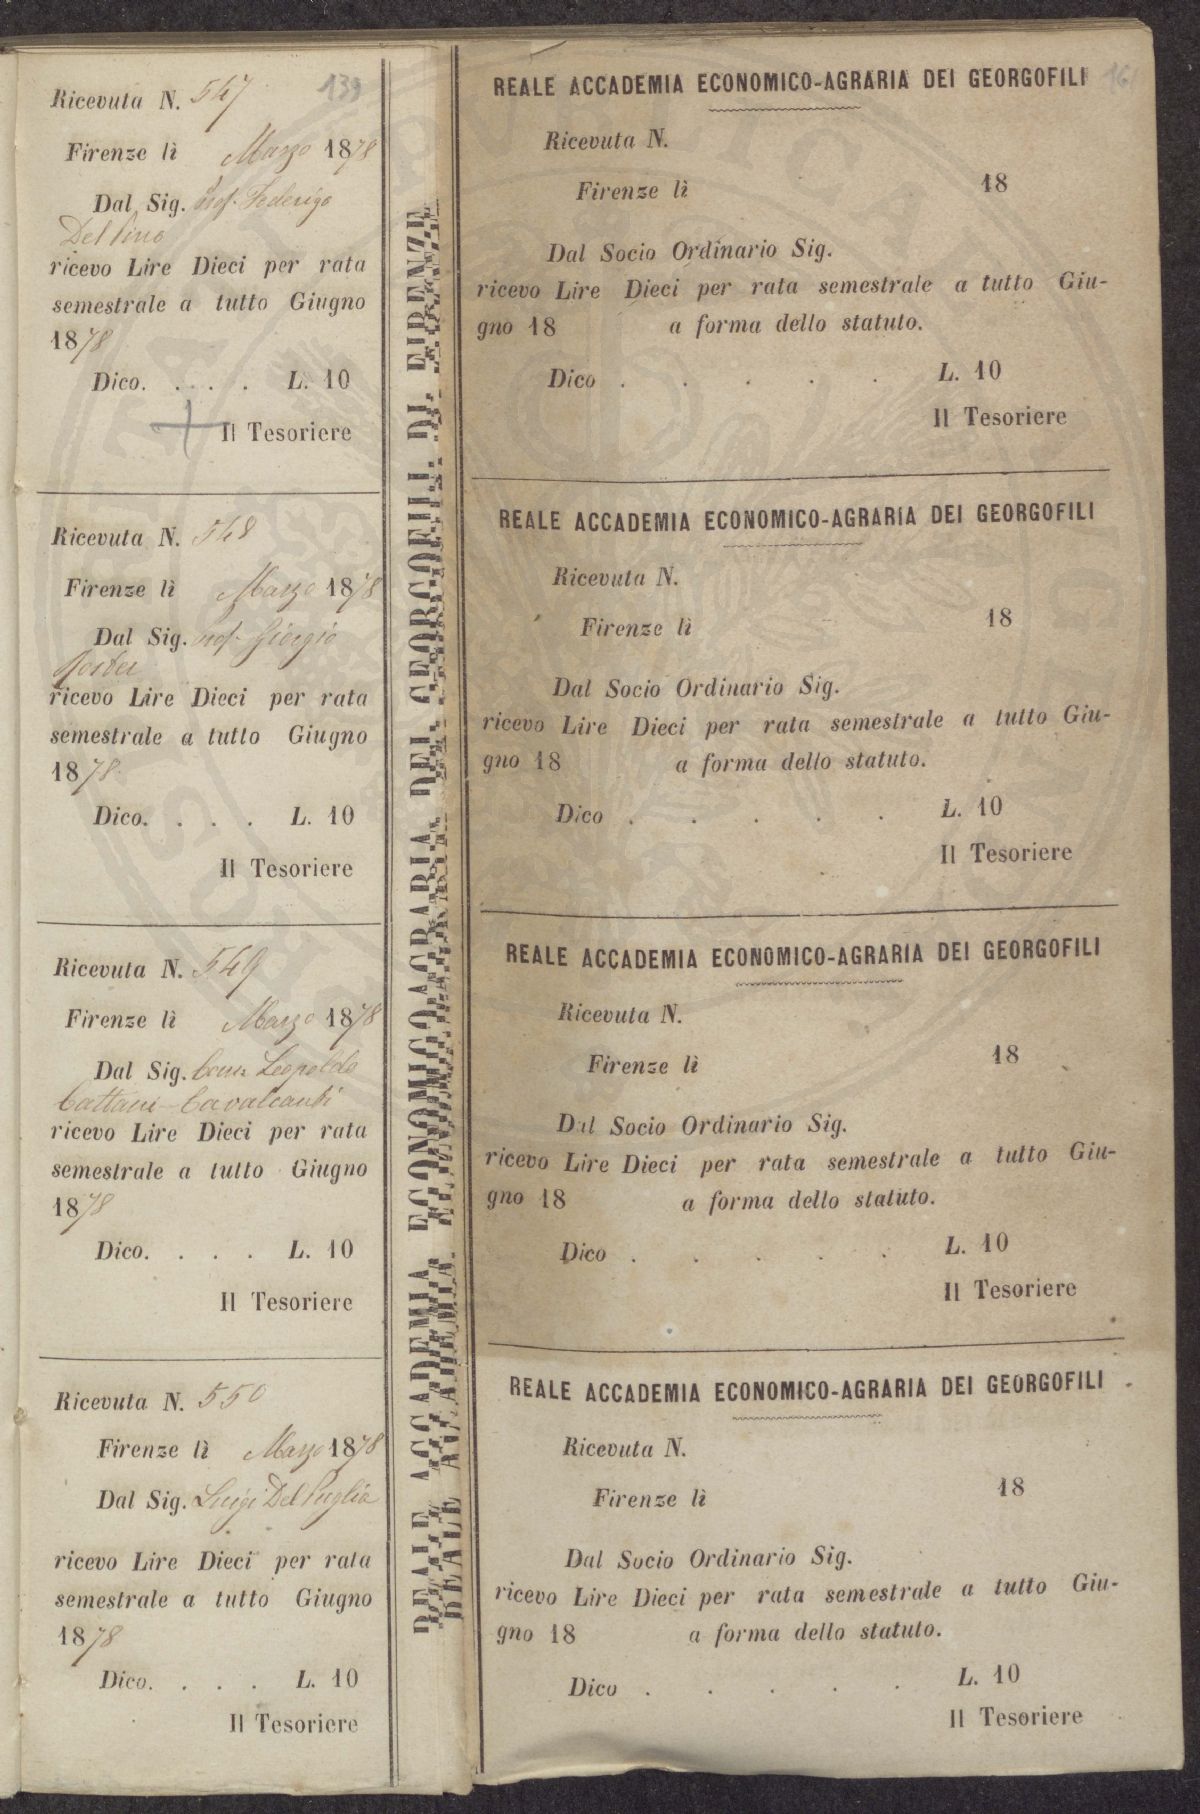 139
Ricevuta N. 547
Firenze lì Marzo 1878
Dal Sig. Prof. Federigo
Delpino
ricevo Lire Dieci per rata
semestrale a tutto Giugno
1878
Dico. . . . . L. 10
Il Tesoriere
Ricevuta N. 548
Firenze lì Marzo 1878
Dal Sig. Prof. Giorgio
Roster
ricevo Lire Dieci per rata
semestrale a tutto Giugno
1878
Dico. . . . L. 10
Il Tesoriere
Ricevuta N. 549
Firenze lì Marzo 1878
Dal Sig. Leopoldo
Cattani-Cavalcanti
ricevo Lire Dieci per rata
semestrale a tutto Giugno
1878
Dico. . . . L. 10
Il Tesoriere
Ricevuta N. 550
Firenze lì Marzo 1878
Dal Sig. Luigi Del Puglia
ricevo Lire Dieci per rata
semestrale a tutto Giugno
1878
Dico. . . . L. 10
Il Tesoriere
REALE ACCADEMIA ECONOMICO-AGRARIA DEI GEORGOFILI DI FIRENZE
REALE ACCADEMIA ECONOMICO-AGRARIA DEI GEORGOFILI
Ricevuta N.
Firenze lì 18
Dal Socio Ordinario Sig.
ricevo Lire Dieci per rata semestrale a tutto Giu-
gno 18 a forma dello statuto.
Dico . . . . . L. 10
Il Tesoriere
REALE ACCADEMIA ECONOMICO-AGRARIA DEI GEORGOFILI
Ricevuta N.
Firenze lì 18
Dal Socio Ordinario Sig.
ricevo Lire Dieci per rata semestrale a tutto Giu-
gno 18 a forma dello statuto.
Dico . . . . . L. 10
Il Tesoriere
REALE ACCADEMIA ECONOMICO-AGRARIA DEI GEORGOFILI
Ricevuta N.
Firenze lì 18
Dal Socio Ordinario Sig.
ricevo Lire Dieci per rata semestrale a tutto Giu-
gno 18 a forma dello statuto.
Dico . . . . . L. 10
Il Tesoriere
REALE ACCADEMIA ECONOMICO-AGRARIA DEI GEORGOFILI
Ricevuta N.
Firenze lì 18
Dal Socio Ordinario Sig.
ricevo Lire Dieci per rata semestrale a tutto Giu-
gno 18 a forma dello statuto.
Dico . . . . . L. 10
Il Tesoriere